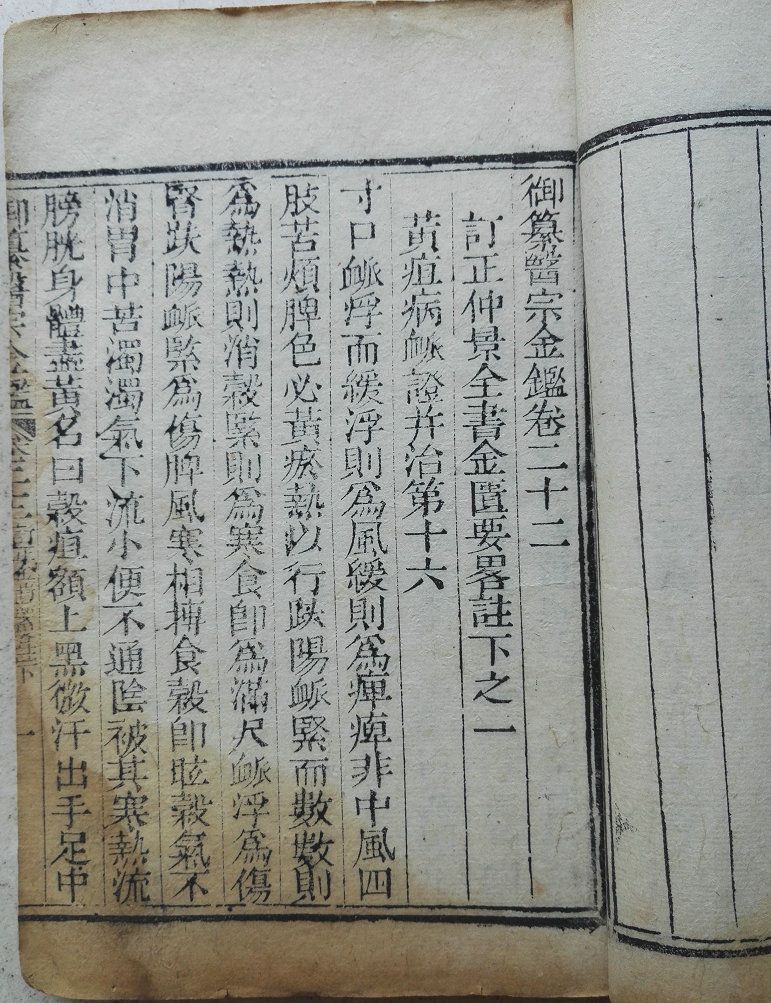 御纂醫宗金鑑卷二十二
訂正仲景全書金匱要畧註下之一
黃疸病脈證并治第十六
寸口脈浮而緩浮則爲風緩則爲痺痺非中風四
肢苦煩脾色必黃瘀熱以行趺陽脈緊而數數則
爲熱熱則消穀緊則爲寒食卽爲滿尺脈浮爲傷
腎趺陽脈緊爲傷脾風寒相摶食穀卽眩穀氣不
消胃中苦濁濁氣下流小便不通陰被其寒熱流
膀胱身體盡黃名曰穀疸額上黑微汗出手足中
御纂醫宗金鑑 一